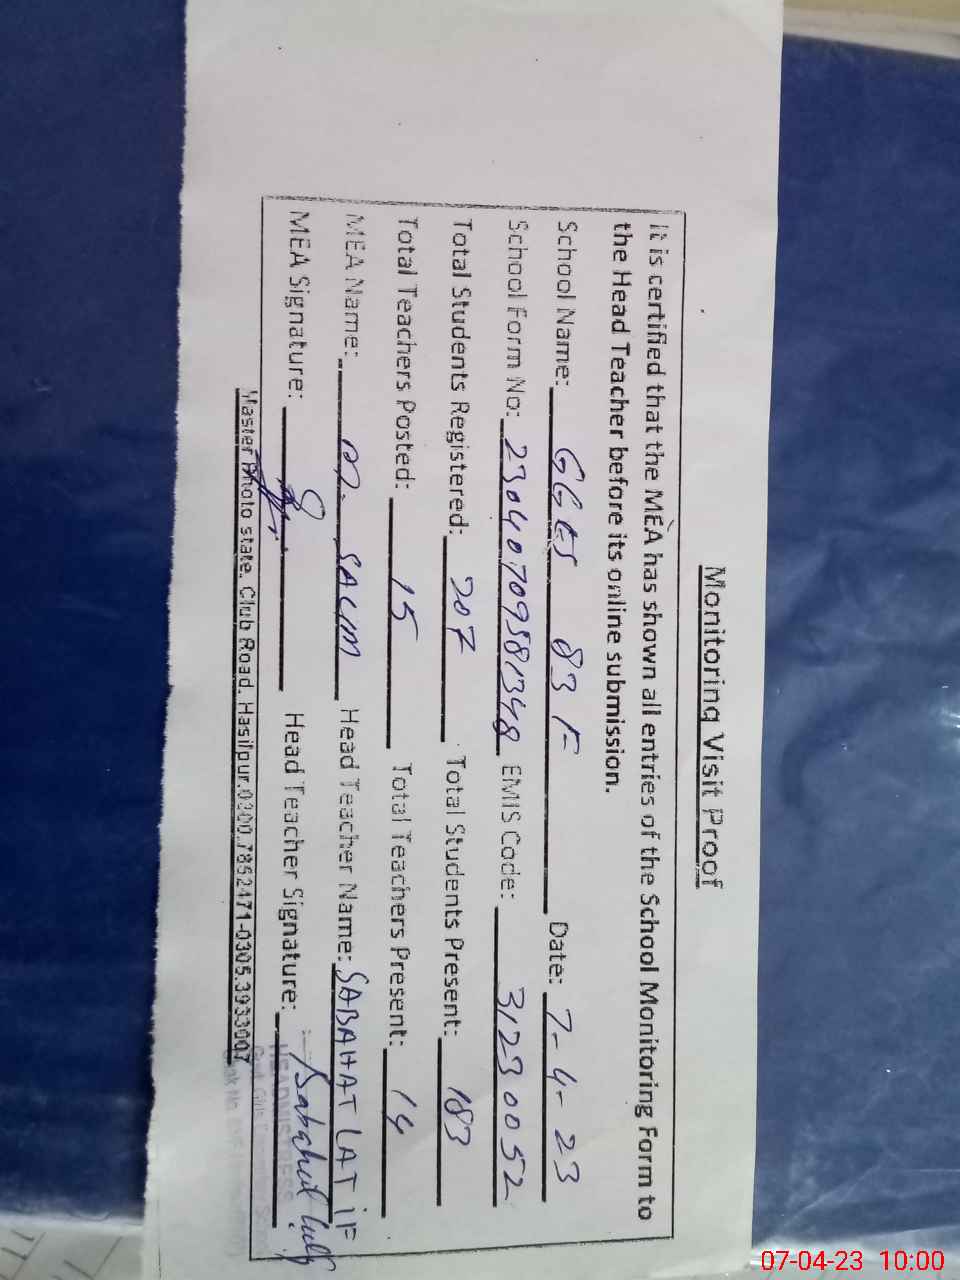 Monitoring Visit Proof
It is certified that the MEA has shown all entries of the School Monitoring Form to
the Head Teacher before its online submission.
School Name: GGES 83 F Date: 7-4-23
School Form No: 23040709581348 EMIS Code: 31230052
Total Students Registered: 207 Total Students Present: 183
Total Teachers Posted: 15 Total Teachers Present: 14
MEA Name: M. SALIM Head Teacher Name: SABAHAT LATIF
MEA Signature: Head Teacher Signature:
HEADMISTRESS
Master Photo state. Club Road. Hasilpur.0300.7852471-0305.3933007
07-04-23 10:00